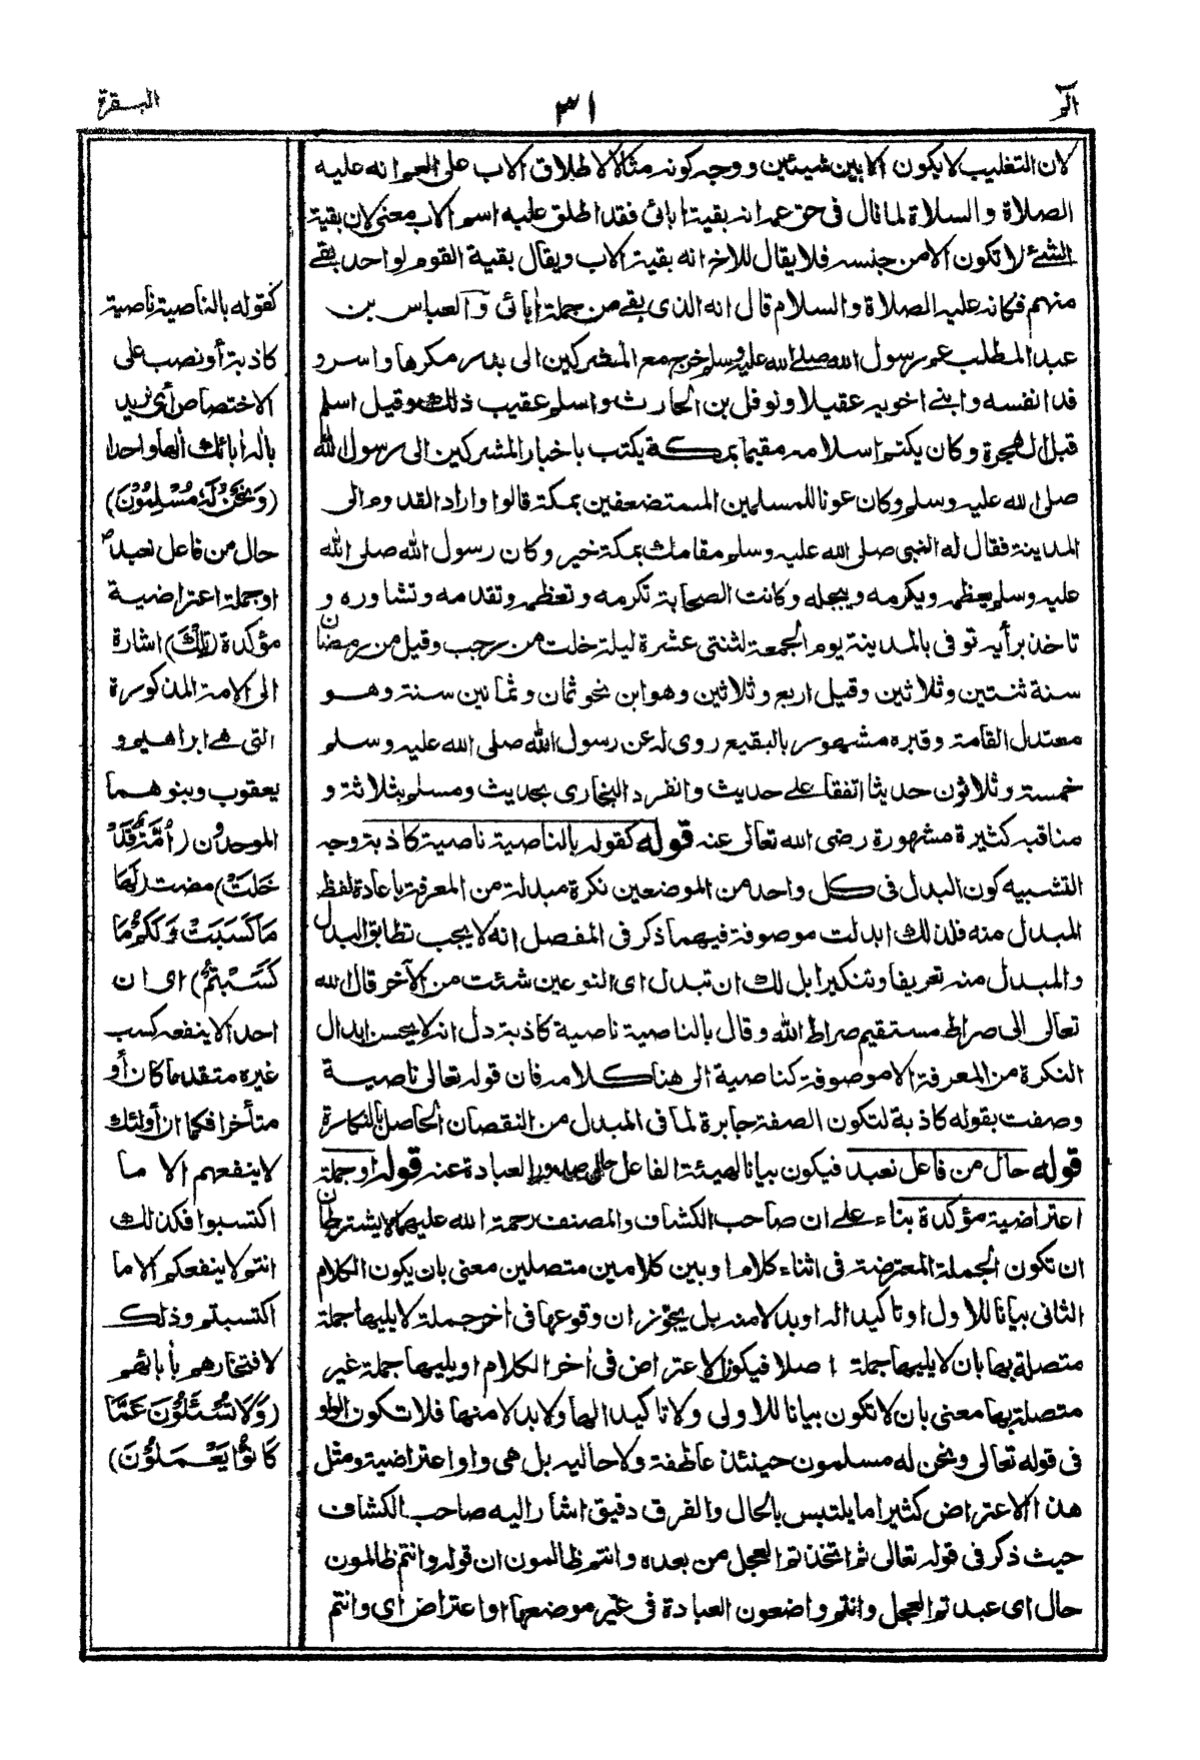 الم
٣١
البقرة
لان التغليب لا يكون الا بين شيئين ووجه كونه مثالا لاطلاق الاب على العم انه عليه
الصلاة والسلاة لما قال فى حق عمه انه بقية ابائى فقد اطلق عليه اسم الاب معنى لان بقية
الشئ لا تكون الا من جنسه فلا يقال للاخ انه بقية الاب ويقال بقية القوم لواحد بقى
منهم فكانه عليه الصلاة والسلام قال انه الذى بقى من جملة اٰبائى والعباس بن
عبد المطلب عم رسول الله صلى الله عليه وسلم خرج مع المشركين الى بدر مكرها واسر و
فدا نفسه وابنى اخويه عقيلا ونوفل بن الحارث واسلم عقيب ذلك وقيل اسلم
قبل الهجرة وكان يكتم اسلامه مقيما بمكة يكتب باخبار المشركين الى رسول الله
صلى الله عليه وسلم وكان عونا للمسلمين المستضعفين بمكة قالوا واراد القدوم الى
المدينة فقال له النبى صلى الله عليه وسلم مقامك بمكة خير وكان رسول الله صلى الله
عليه وسلم يعظمه ويكرمه ويبجله وكانت الصحابة تكرمه وتعظمه وتقدمه وتشاوره و
تاخذ برأيه توفى بالمدينة يوم الجمعة لثنتى عشرة ليلة خلت من رجب وقيل من رمضان
سنة ثنتين وثلاثين وقيل اربع وثلاثين وهو ابن نحو ثمان وثمانين سنة وهو
معتدل القامة وقبره مشهور بالبقيع روى له عن رسول الله صلى الله عليه وسلم
خمسة وثلاثون حديثا اتفقا على حديث وانفرد البخارى بحديث ومسلم بثلاثة و
مناقبه كثيرة مشهورة رضى الله تعالى عنه قوله كقوله بالناصية ناصية كاذبة وجه
التشبيه كون البدل فى كل واحد من الموضعين نكرة مبدلة من المعرفة باعادة لفظ
المبدل منه فلذلك ابدلت موصوفة فيهما ذكر فى المفصل انه لا يجب تطابق البدل
والمبدل منه تعريفا وتنكيرا بل لك ان تبدل اى النوعين شئت من الآخر قال الله
تعالى الى صراط مستقيم صراط الله وقال بالناصية ناصية كاذبة دل انه لا يحسن ابدال
النكرة من المعرفة الا موصوفة كناصية الى هنا كلامه فان قوله تعالى ناصية
وصفت بقوله كاذبة لتكون الصفة جابرة لما فى المبدل من النقصان الحاصل بالنكارة
قوله حال من فاعل نعبد فيكون بيانا لهيئة الفاعل حال صدور العبادة عنه قوله او جملة
اعتراضية مؤكدة بناء على ان صاحب الكشاف والمصنف رحمة الله عليهما لا يشترطان
ان تكون الجملة المعترضة فى اثناء كلام او بين كلامين متصلين معنى بان يكون الكلام
الثانى بيانا للاول او تاكيدا له او بدلا منه بل يجوز ان وقوعها فى اٰخر جملة لا يليها جملة
متصلة بها بان لا يليها جملة اصلا فيكون الاعتراض فى اٰخر الكلام او يليها جملة غير
متصلة بها معنى بان لا تكون بيانا للاولى ولا تاكيدا لها ولا بدلا منها فلا تكون الواو
فى قوله تعالى ونحن له مسلمون حينئذ عاطفة ولا حاليه بل هى واو اعتراضية ومثل
هذا الاعتراض كثيرا ما يلتبس بالحال والفرق دقيق اشار اليه صاحب الكشاف
حيث ذكر فى قوله تعالى ثم اتخذتم العجل من بعده وانتم ظالمون ان قوله وانتم ظالمون
حال اى عبدتم العجل وانتم واضعون العبادة فى غير موضعها او اعتراض اى وانتم
كقوله بالناصية ناصية
كاذبة أو نصب على
الاختصاص أى نريد
باله اٰبائك الها واحدا
(وَنَحْنُ لَهُ مُسْلِمُوْنَ)
حال من فاعل نعبد
او جملة اعتراضية
مؤكدة (تِلْكَ) اشارة
الى الامة المذكورة
التى هى ابراهيم و
يعقوب وبنوهما
الموحدون (أُمَّةٌ قَدْ
خَلَتْ) مضت (لَهَا
مَا كَسَبَتْ وَلَكُمْ مَا
كَسَبْتُمْ) اى ان
احدا لا ينفعه كسب
غيره متقدما كان أو
متأخرا فكما ان أولئك
لا ينفعهم الا ما
اكتسبوا فكذلك
انتم لا ينفعكم الا ما
اكتسبتم وذلك
لافتخارهم بأبائهم
(وَلَا تُسْئَلُوْنَ عَمَّا
كَانُوْا يَعْمَلُوْنَ)